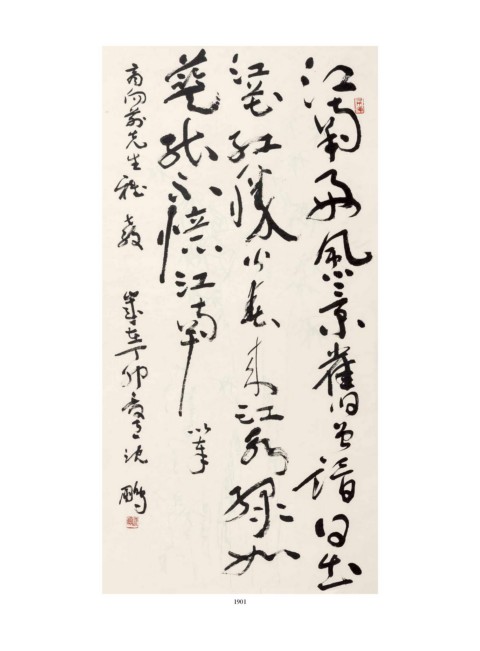 江南好風景舊曾諳日出
江花紅勝火春來江水綠如
藍能不憶江南
先生雅教 歲在丁卯夏 沈鵬
1901